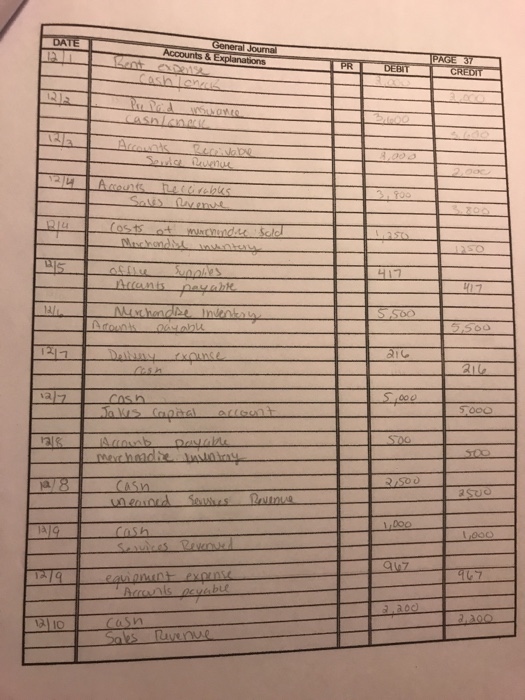 General Journal
PAGE 37
DATE Accounts & Explanations PR DEBIT CREDIT
12/1 Rent expense
Cash/check
12/2 Pre Paid insurance 3,600
Cash/check 3,600
12/3 Accounts Receivable 2,000
Service Revenue 2,000
12/4 Accounts Receivables 3,800
Sales Revenue 3,800
12/4 Costs of merchandise Sold 1,250
Merchandise inventory 1250
12/5 office Supplies 417
Accounts payable 417
12/6 Merchandise Inventory 5,500
Accounts payable 5,500
12/7 Delivery expense 216
Cash 216
12/7 Cash 5,000
Jakes Capital account 5,000
12/8 Accounts payable 500
merchandise inventory 500
12/8 Cash 2,500
Revenue 2500
12/9 Cash 1,000
Services 1,000
12/9 equipment expense 967
Accounts payable 967
12/10 Cash 2,200
Sales Revenue 2,200